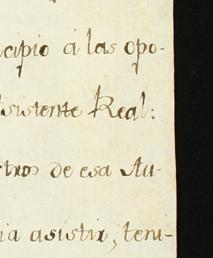 cipio á las opo-
sistente Real:
tros de esa Au-
ia asistir, teni-